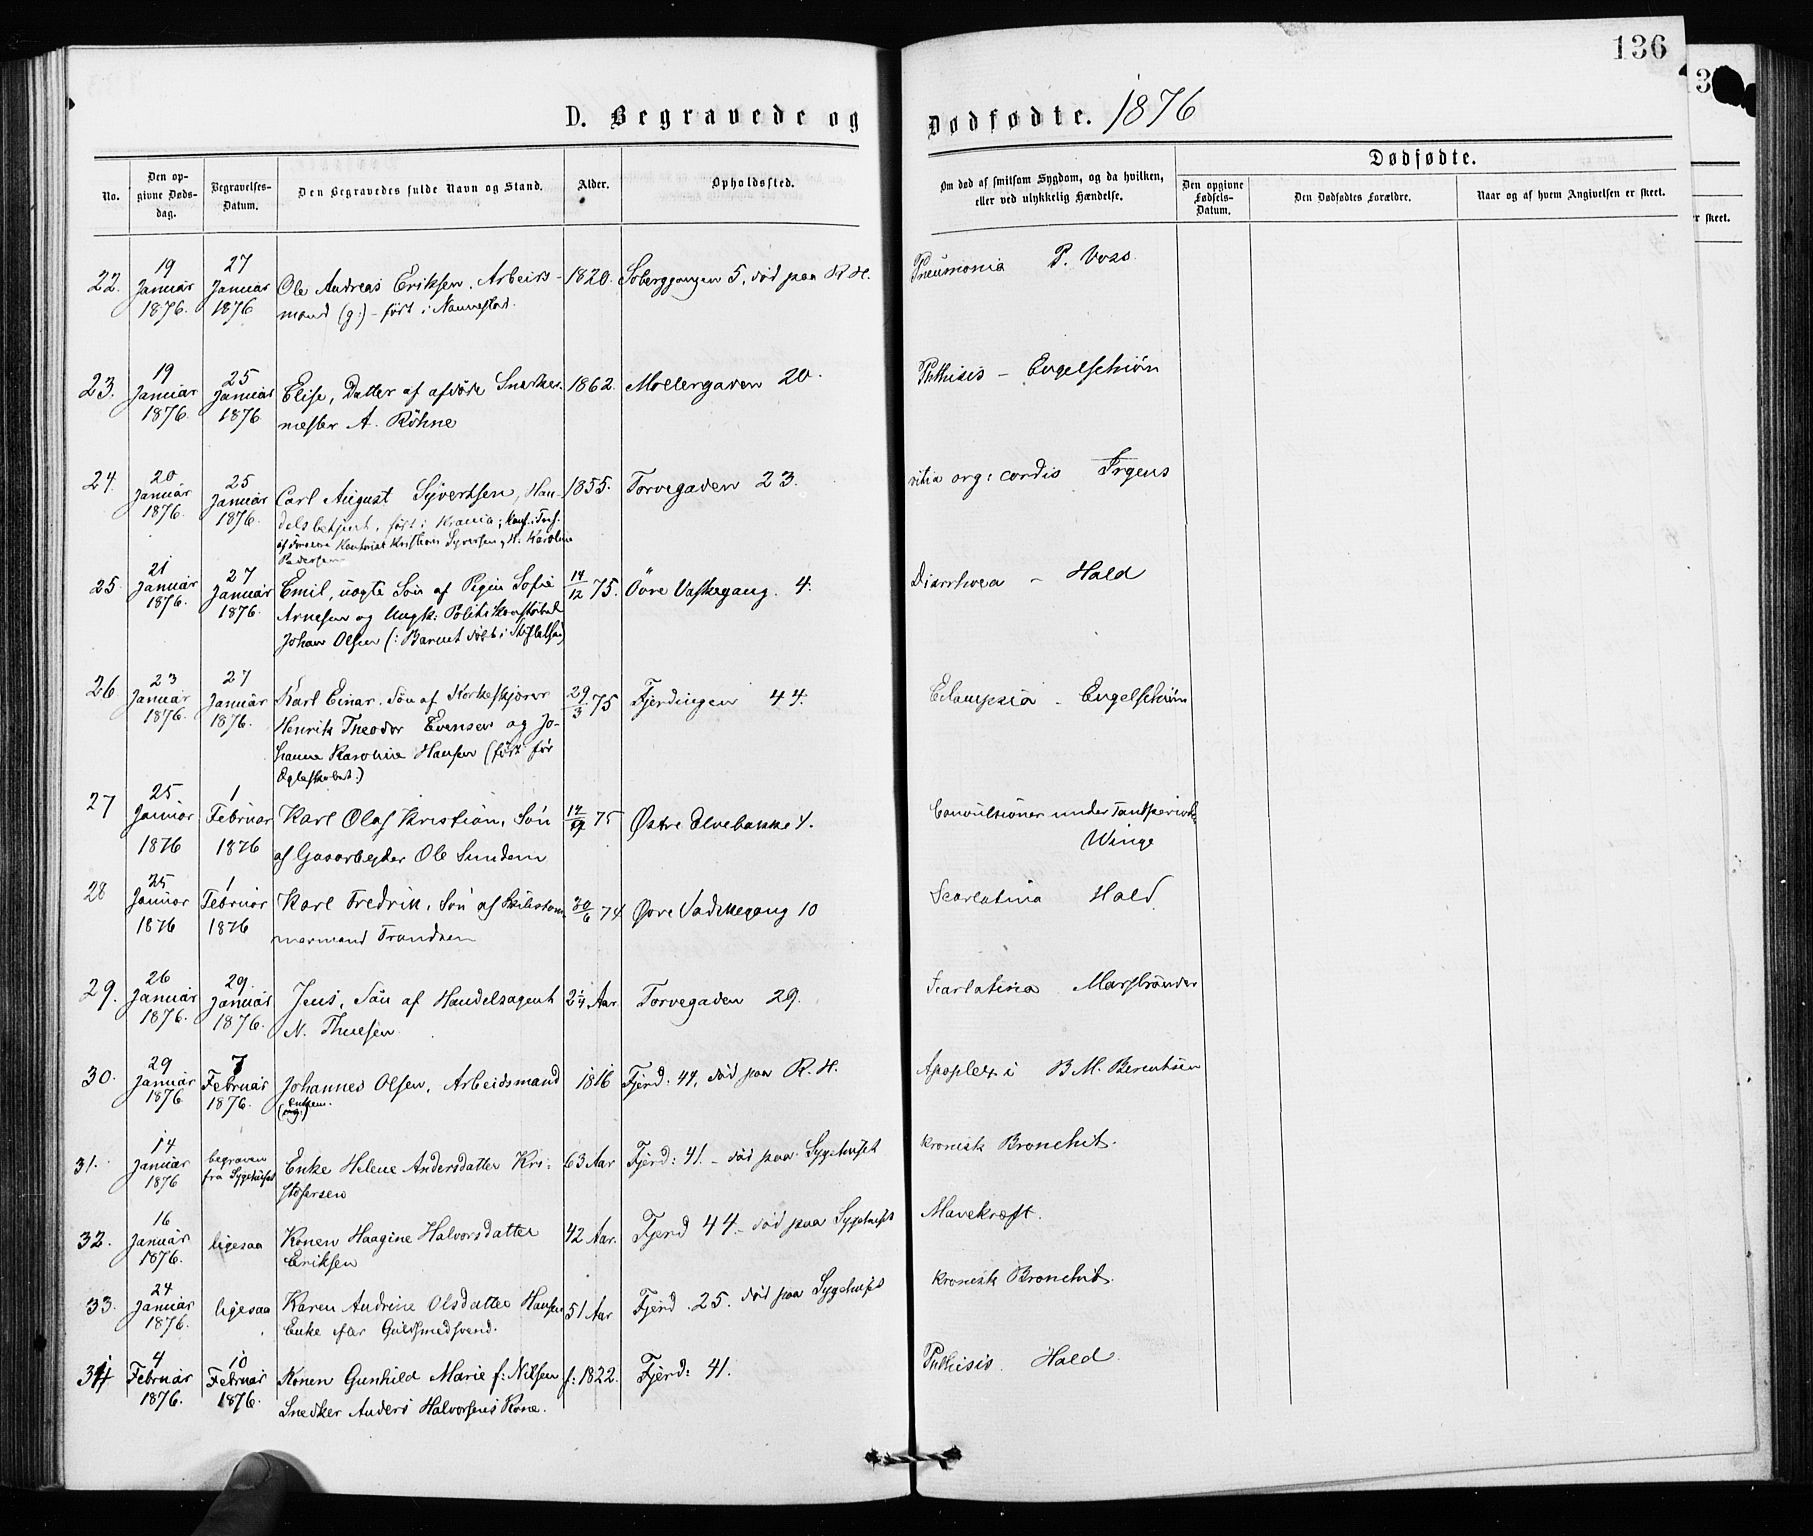 136
D. Begravede og Dødfødte. 1876
No.
Den opgivne Dødsdag.
Begravelses-Datum.
Den Begravedes fulde Navn og Stand.
Alder.
Opholdssted.
Om død af smitsom Sygdom, og da hvilken, eller ved ulykkelig Hændelse.
Dødfødte.
Den opgivne Fødsels-Datum.
Den Dødfødtes Forældre.
Naar og af hvem Angivelsen er skeet.
er skeet.
22. 19 Januar 1876. 27 Januar 1876 Ole Andreas Eriksen, Arbeids- 1820. 5, død paa R.H. Pneumonia P. Voss.
mand (g:) - ført i Nannestad.
23. 19 Januar 1876. 25 Januar 1876 Elise, Datter af afdøde Snedker- 1862. Møllergaden 20. Phthisis - Engelschiøn
mester A. Röhne
24. 20 Januar 1876. 25 Januar 1876. Carl August Syvertsen, Han- 1855. Torvegaden 23. vitia org: cordis Irgens
delsbetjent, født i Krania; Konf. i Tref.
af Kristian Syversen og H. Karoline
Pedersen
25. 21 Januar 1876. 27 Januar 1876. Emil, uægte Søn af Pigen Sofie 14/12 75. Øvre Vaskegang. 4. Diarrhoea - Hald
Arnesen og Ungk: Politikonstabel
Johan Olsen (: Barnet døbt i
26 23 Januar 1876. 27 Januar 1876. Karl Einar, Søn af Korkeskjærer 29/3 75 Fjerdingen 44. Eclampsia - Engelschiøn
Henrik Theodor Evensen og Jo-
hanne Karoline Hansen (født før
Ægteskabet:)
27 25 Januar 1876 1 Februar 1876 Karl Olaf Kristian, Søn 75 Østre Elvebakke 4. Convulsioner under Tandperiode
af Gasarbejder Ole Sundem Winge
28 25 Januar 1876 1 Februar 1876 Karl Fredrik, Søn af Skibstøm- 30/6 74 Øvre Vaskegang 10 Scarlatina Hald
mermand Trandsen
29. 26 Januar 1876. 29. Januar 1876. Jens, Søn af Handelsagent 2¼ Aar. Torvegaden 29. Scarlatina Marstrander
N. Thuesen.
30. 29 Januar 1876 7 Februar 1876. Johannes Olsen, Arbeidsmand 1816 Fjerd: 44, død paa R.H. Apoplexi B M. Berentsen
(enkem.)
31. 14 Januar 1876 begraven fra Sygehuset Enke Helene Andersdatter Kri- 63 Aar Fjerd: 41. - død paa Sygehuset kronisk Bronchit.
stofersen
32. 16 Januar 1876. ligesaa Konen Haagine Halvorsdatter 42 Aar. Fjerd 44 - død paa Sygehuset Mavekræft.
Eriksen
33. 24 Januar 1876. ligesaa Karen Andrine Olsdatter Hansen 51 Aar Fjerd. 25. død paa Sygehuset kronisk Bronchit.
Enke efter Guldsmedsvend.
34 4 Februar 1876. 10 Februar 1876. Konen Gunhild Marie f: Nilsen f: 1822. Fjerd: 41. Phthisis. Hald
Snedker Anders Halvorsens Kone.